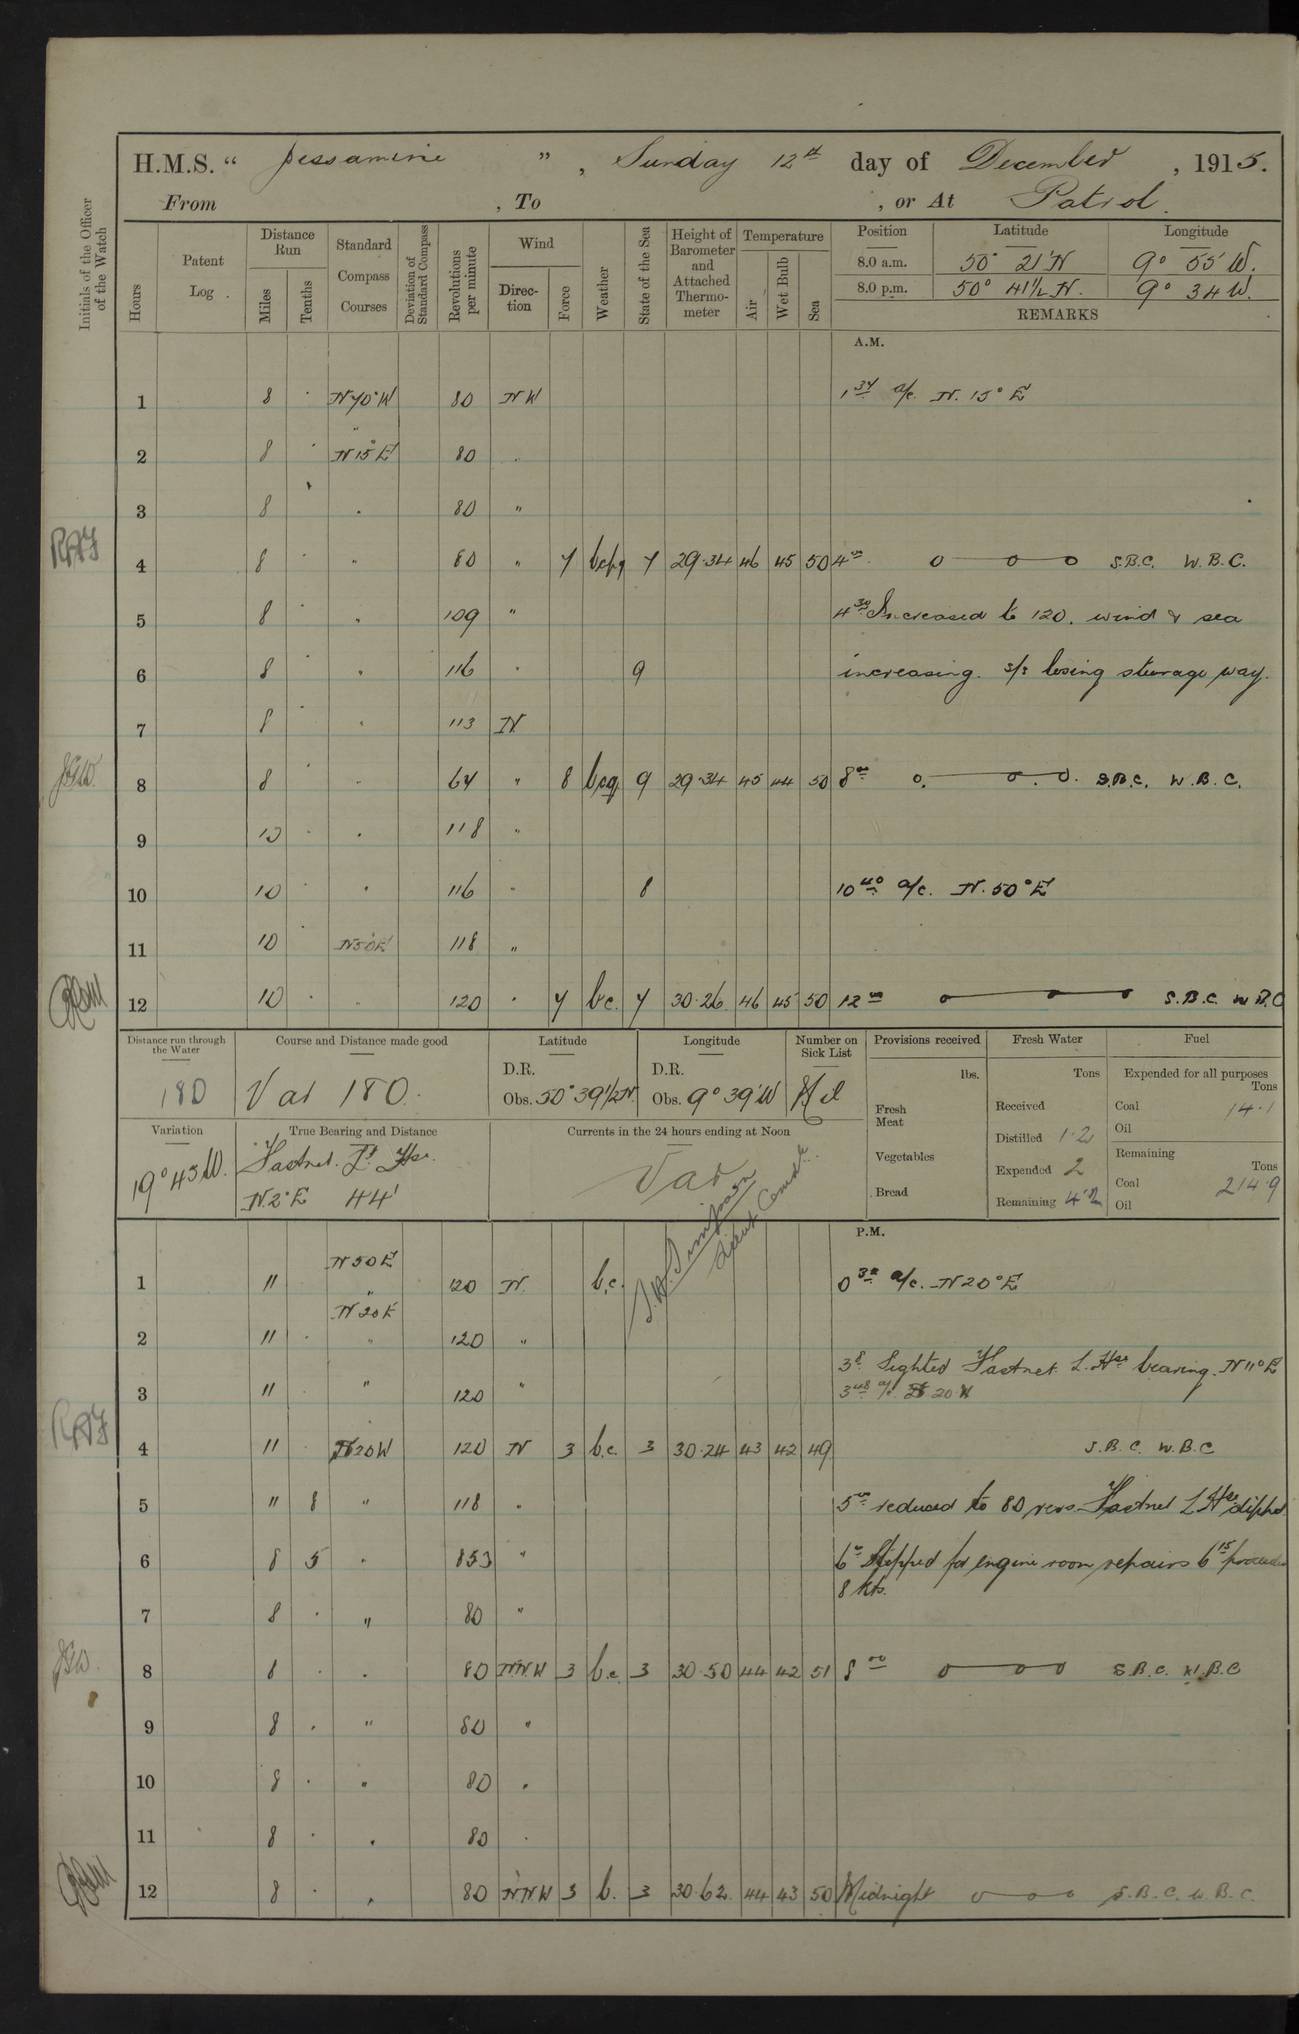 H.M.S. “ Jessamine ”, Sunday 12th day of December, 1915.
From , To , or At Patrol.
Initials of the Officer of the Watch
Hours
Patent Log.
Distance Run
Miles
Tenths
Standard Compass Courses
Deviation of Standard Compass
Revolutions per minute
Wind
Direction
Force
Weather
State of the Sea
Height of Barometer and Attached Thermometer
Temperature
Air
Wet Bulb
Sea
Position Latitude Longitude
8.0 a.m. 50° 21' N 9° 55' W.
8.0 p.m. 50° 41½ N. 9° 34 W.
REMARKS
A.M.
1 8 . N70°W 80 NW 1 34 a/c. N. 15° E
2 8 . N15°E 80 "
3 8 . " 80 "
4 8 . " 80 " 7 bcpq 7 29.34 46 45 50 4 o o o S.B.C. W.B.C.
5 8 . " 109 " 4 30 Increased to 120. wind & sea
6 8 . " 116 " 9 increasing. s/s losing steerage way.
7 8 . " 113 N.
8 8 . " 64 " 8 bcq 9 29.34 45 44 50 8 o. o o. S.B.C. W.B.C.
9 10 . " 118 "
10 10 . " 116 " 8 10 40 a/c. N. 50° E
11 10 . N50E 118 "
12 10 . " 120 " 7 bc. 7 30.26 46 45 50 12 o o o S.B.C W B.C
Distance run through the Water
180
Course and Distance made good
Var 180.
Latitude
D.R.
Obs. 50° 39½ N.
Longitude
D.R.
Obs. 9° 39' W
Number on Sick List
Nil
Provisions received
lbs.
Fresh Meat
Vegetables
Bread
Fresh Water
Tons
Received
Distilled 1.2
Expended 2
Remaining
Fuel
Expended for all purposes
Tons
Coal 14.1
Oil
Remaining
Tons
Coal 214.9
Oil
Variation
19° 43 W.
True Bearing and Distance
Fastnet Lt Hse.
N.2°E 44'
Currents in the 24 hours ending at Noon
Var
P.M.
1 11 N 50 E " 120 N. b.c. 0 30 a/c. N 20° E
2 11 . N 20 E " 120 "
3 11 " 120 " 3 8 Sighted Fastnet L. Hse bearing N 11° E
3 48 a/c 20 W
4 11 . N20W 120 N 3 b.c. 3 30.24 43 42 49 S.B.C. W.B.C
5 11 8 " 118 " 5 reduced to 80 revs. Fastnet L Hse dipped
6 8 5 " 853 " 6 Stopped for engine room repairs 6 15 proceeded
8 kts.
7 8 . " 80 "
8 8 . " 80 NNW 3 b.c. 3 30.50 44 42 51 8 00 o o o S.B.C. W.B.C
9 8 . " 80 "
10 8 . " 80 "
11 8 . " 80 "
12 8 . " 80 NNW 3 b. 3 30.62 44 43 50 Midnight o o o S.B.C. W.B.C.